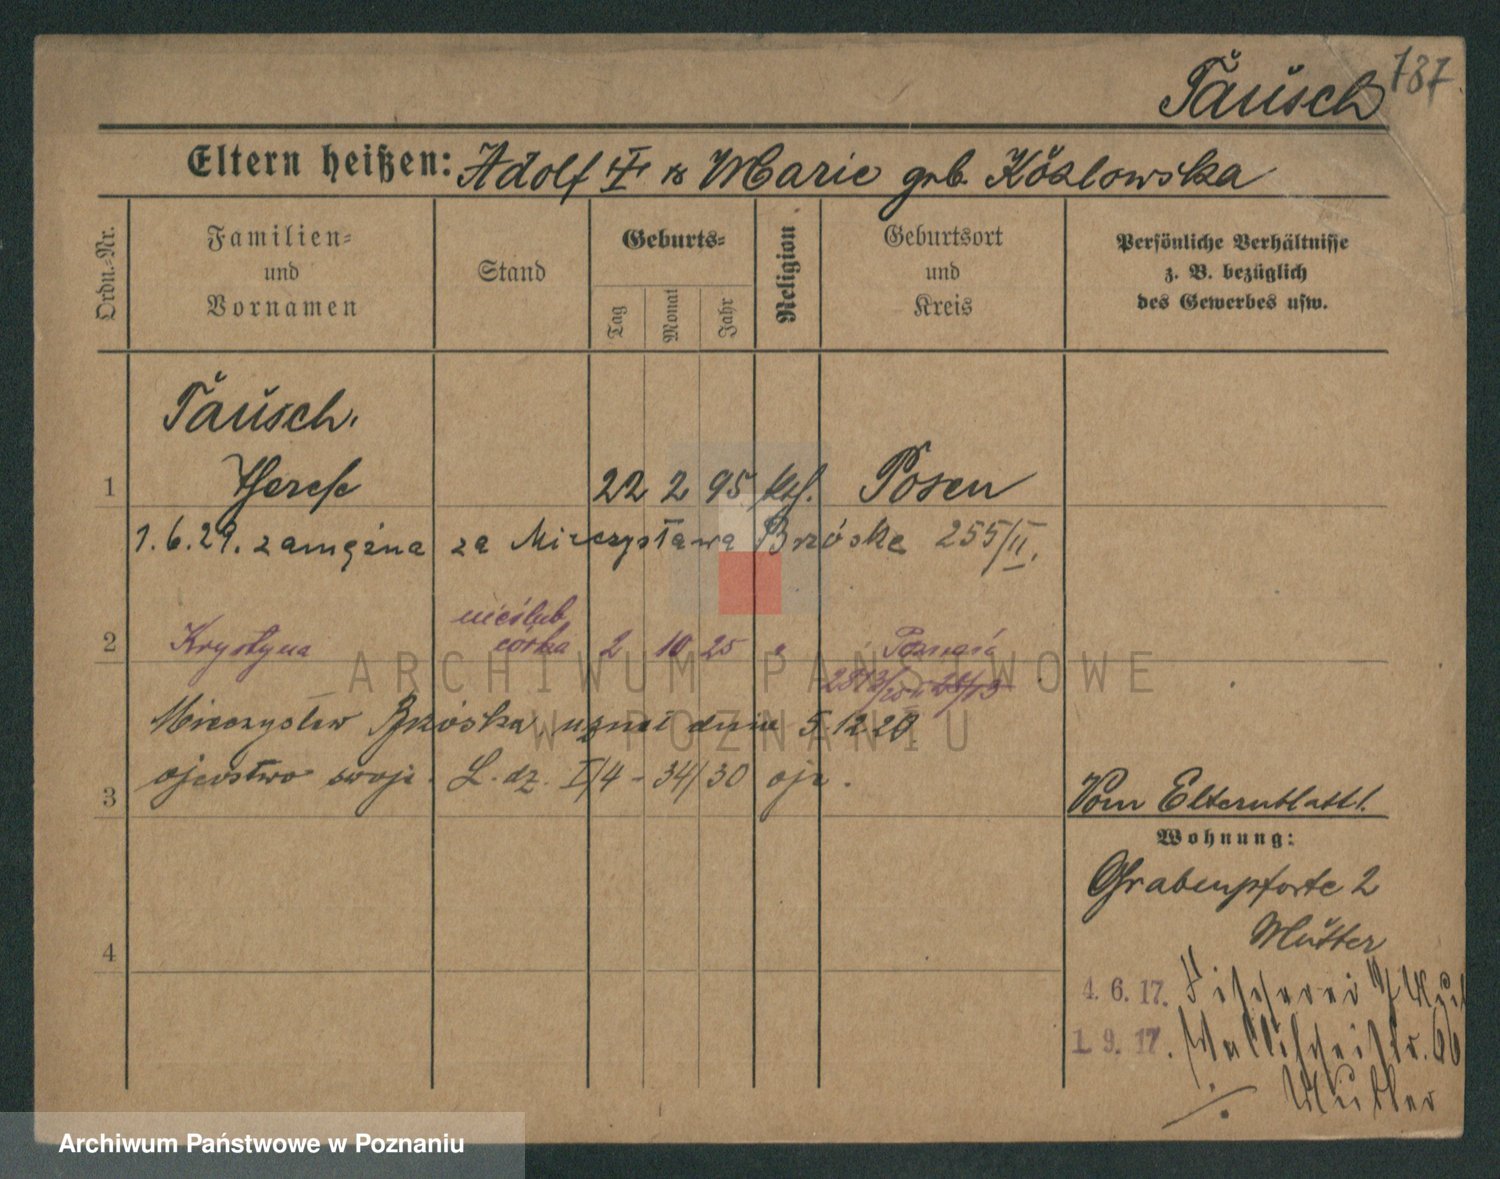 Täusch 787
Eltern heißen: Adolf & Marie geb. Kózlowska
Ordn.-Nr.
Familien-
und
Vornamen
Stand
Geburts-
Tag
Monat
Jahr
Religion
Geburtsort
und
Kreis
Persönliche Verhältnisse
z. B. bezüglich
des Gewerbes usw.
Täusch.
1 Therese 22 2 95 kth. Posen
1.6.29. zamężna za Mieczysława Brzóske 255/II.
nieślub
2 Krystyna córka 2 10 25 " Poznań
Mieczysław Brzóska uznał dnia 5.12 29
ojcostwo swoje. L. dz. I/4 - 34/30 ojc.
3
Vom Elternblatt 1.
Wohnung:
Grabenpforte 2
Mutter
4
4. 6. 17. Fischerei
1. 9. 17. Wallischeistr. 66
Mutter
ARCHIWUM PAŃSTWOWE
W POZNANIU
Archiwum Państwowe w Poznaniu